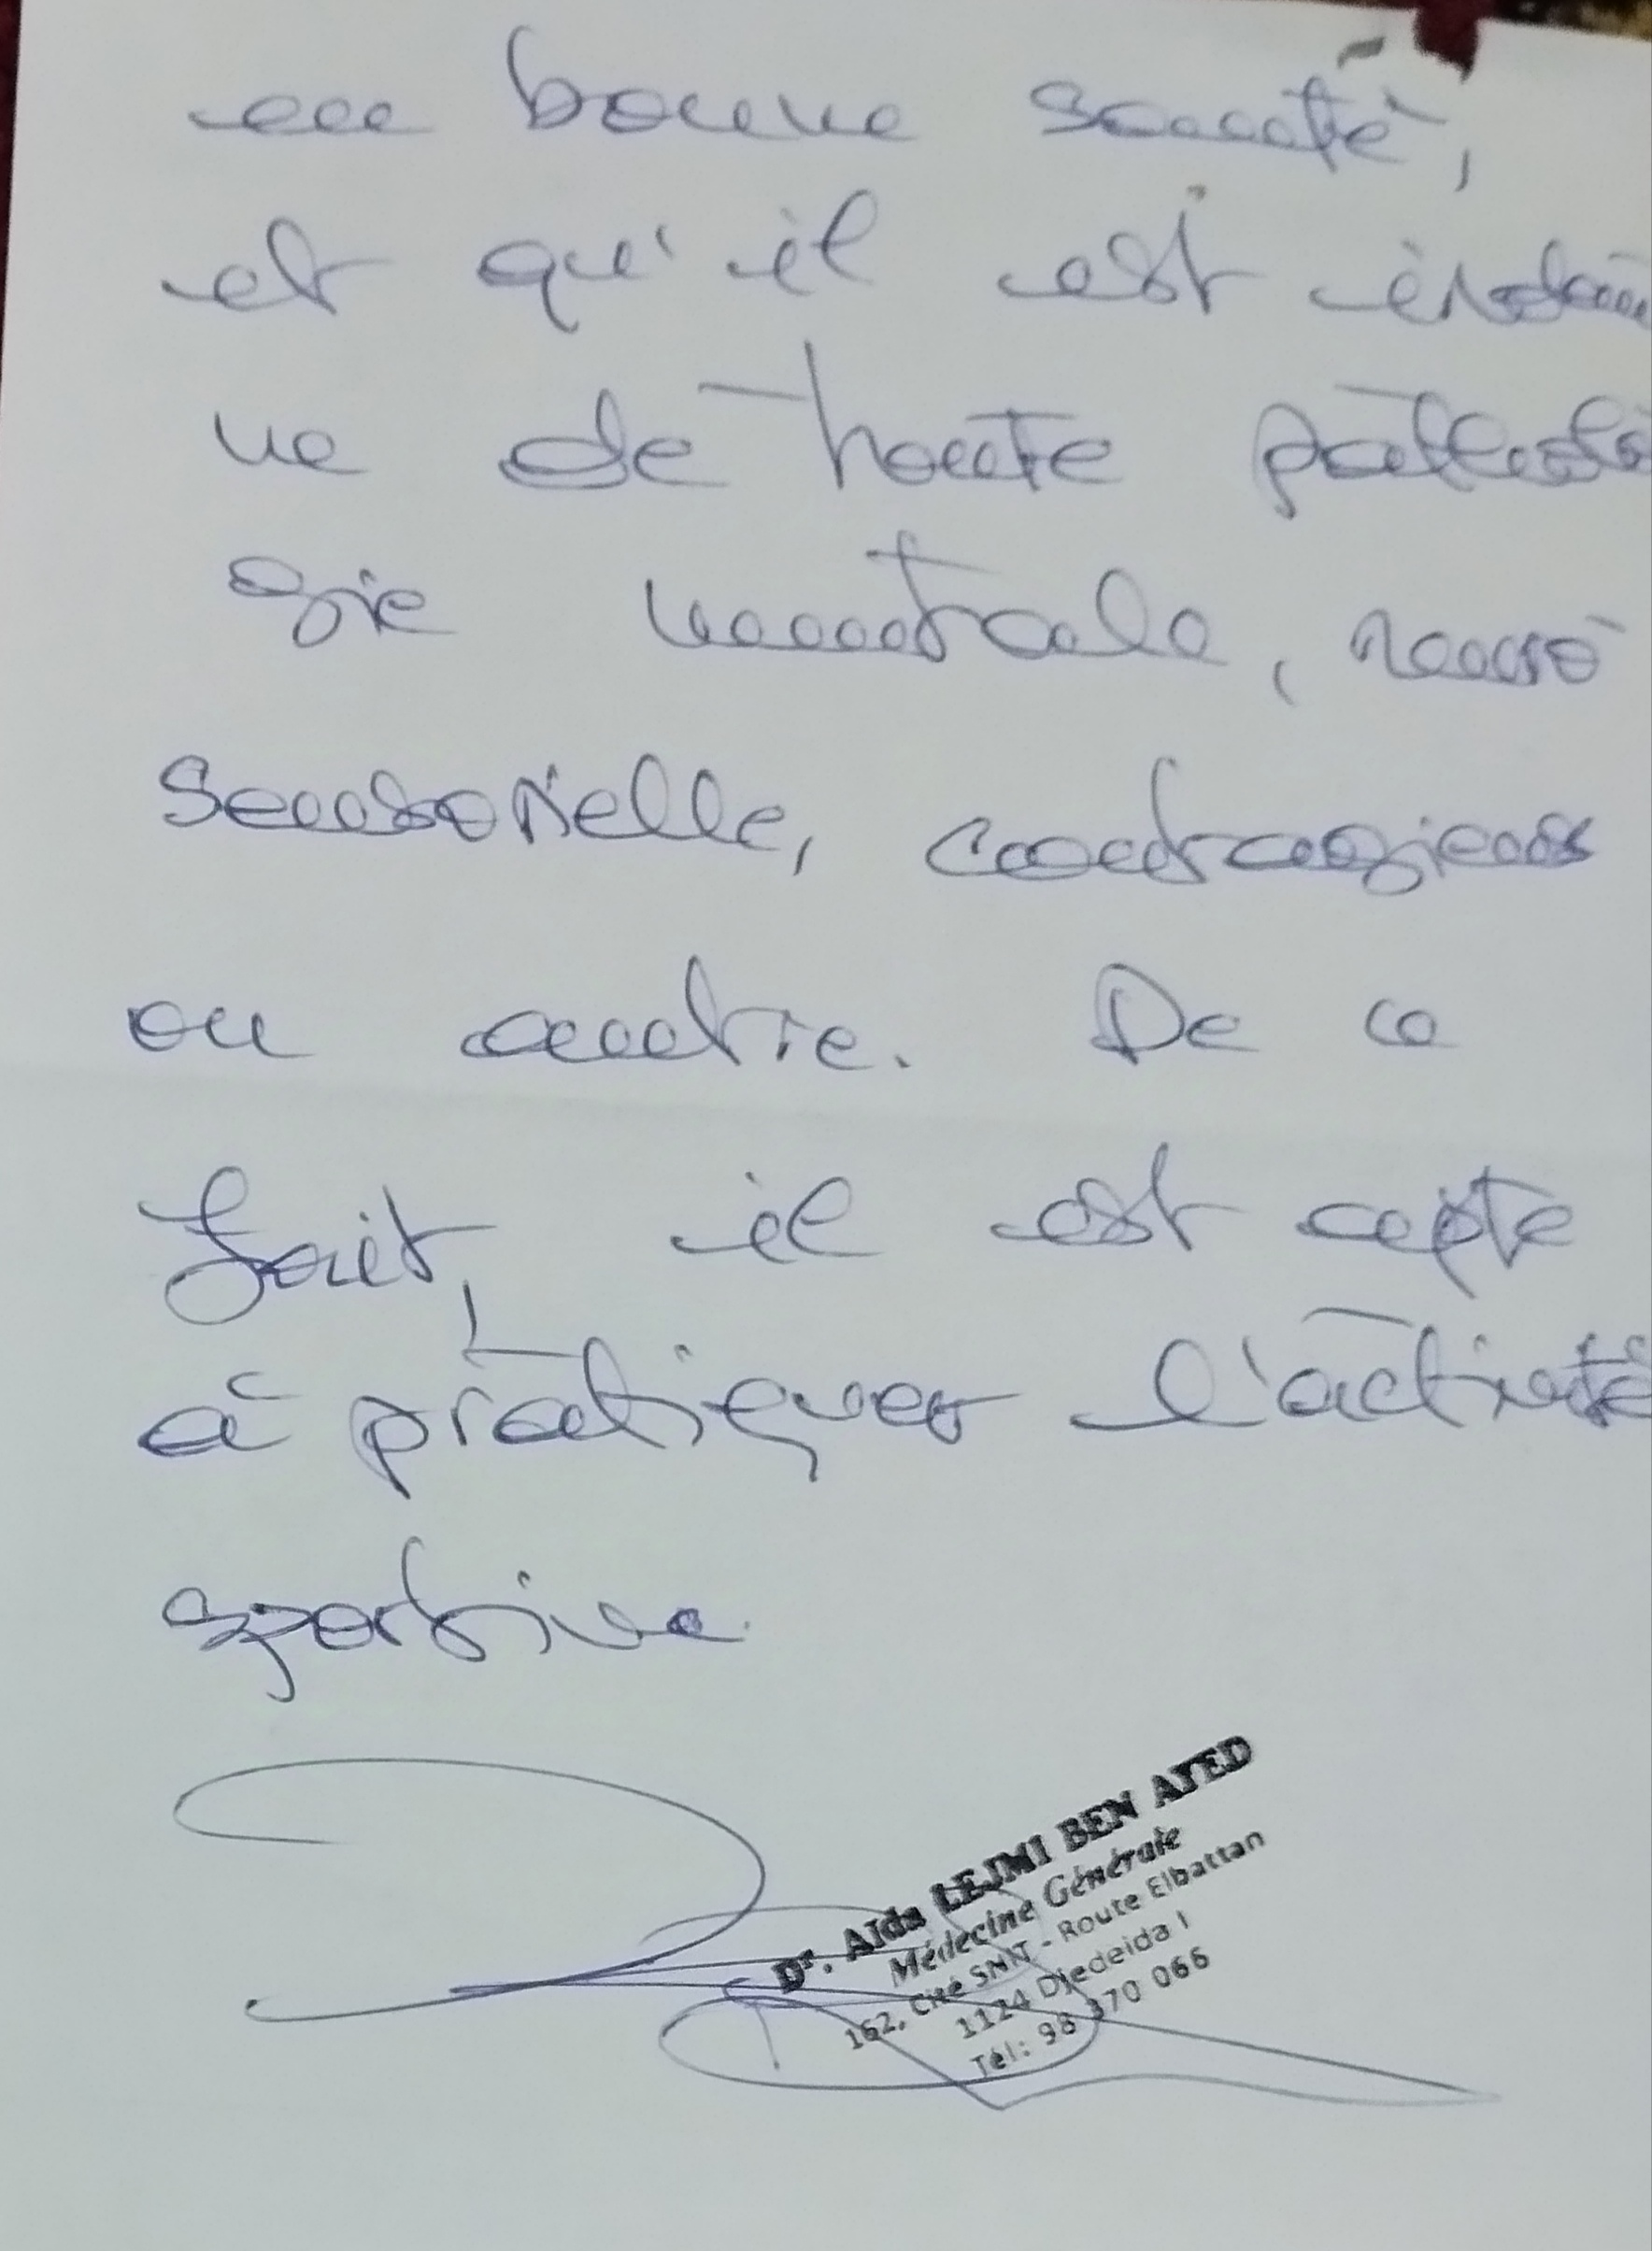 en bonne santé,
et qu'il est indem
ne de toute patholo
gie mentale, neuro
sensorielle, contagieuse
ou autre. De ce
fait, il est apte
à pratiquer l'activité
sportive.
Dr. Aïda LEJMI BEN AYED
Médecine Générale
162, Cité SNIT - Route Elbattan
1124 Djedeida I
Tél: 98 370 066